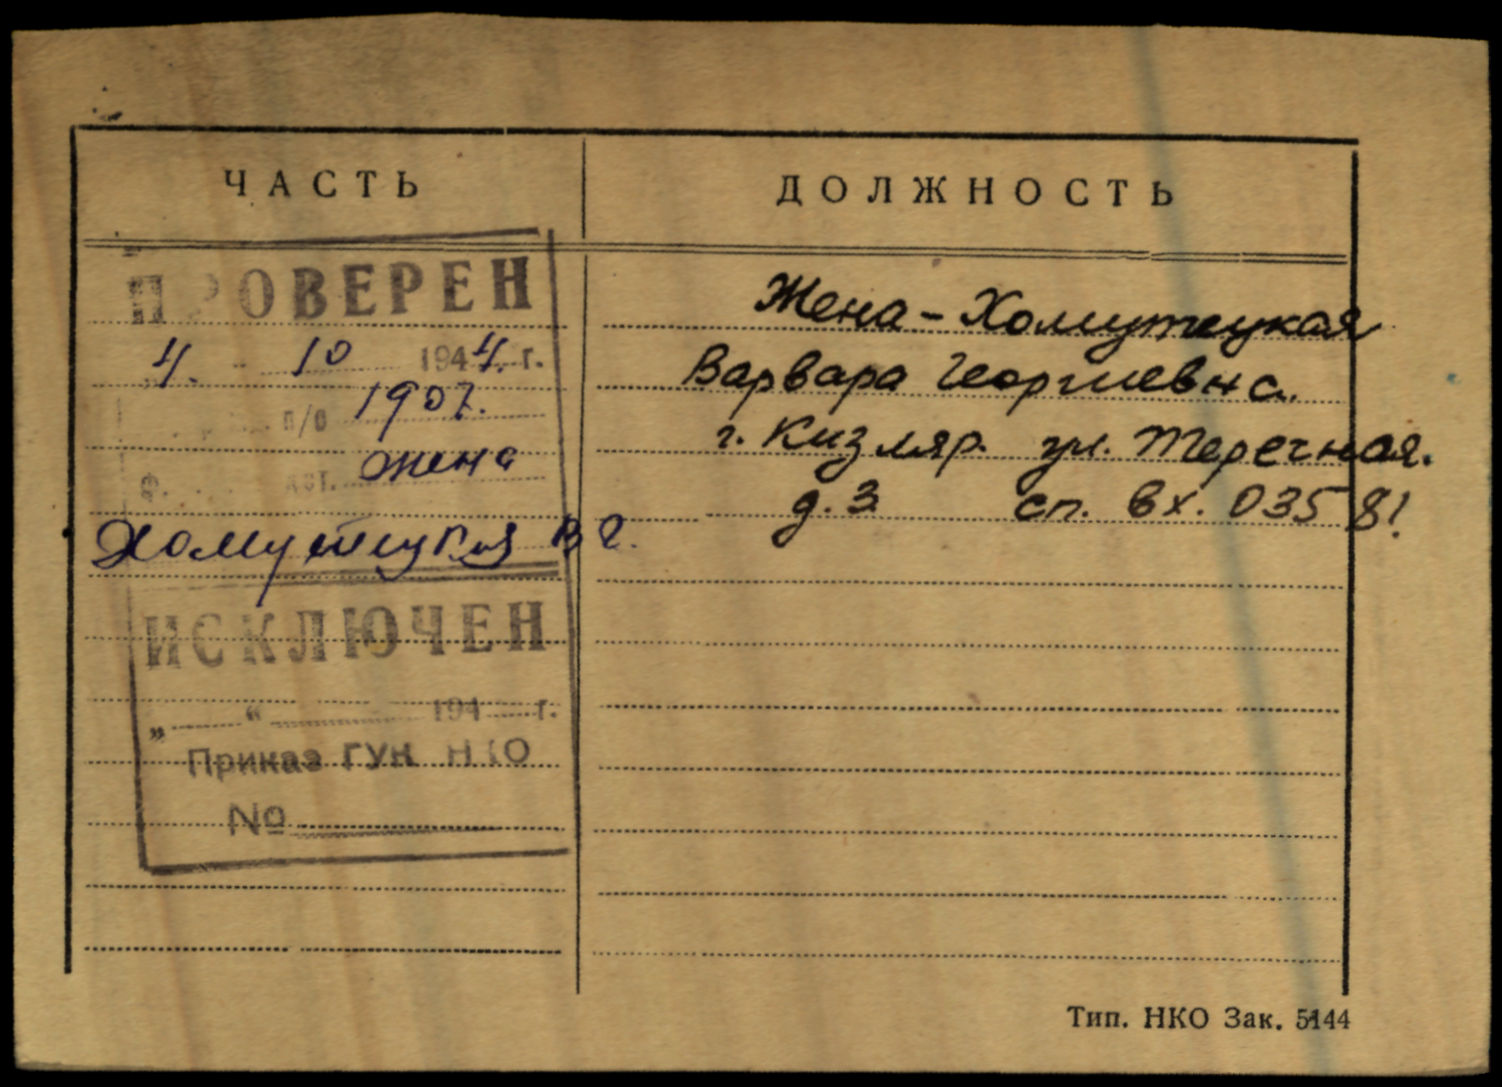 ЧАСТЬ
ДОЛЖНОСТЬ
ПРОВЕРЕН
4. - 10 1944. г.
п/о 1907.
Ф. жена
Хомутецкая В Г.
ИСКЛЮЧЕН
„ “ 194 г.
Приказ ГУК НКО
№
Жена - Хомутецкая
Варвара Георгиевна.
г. Кизляр. ул. Теречная.
д. 3 сп. вх. 0358!
Тип. НКО Зак. 5144